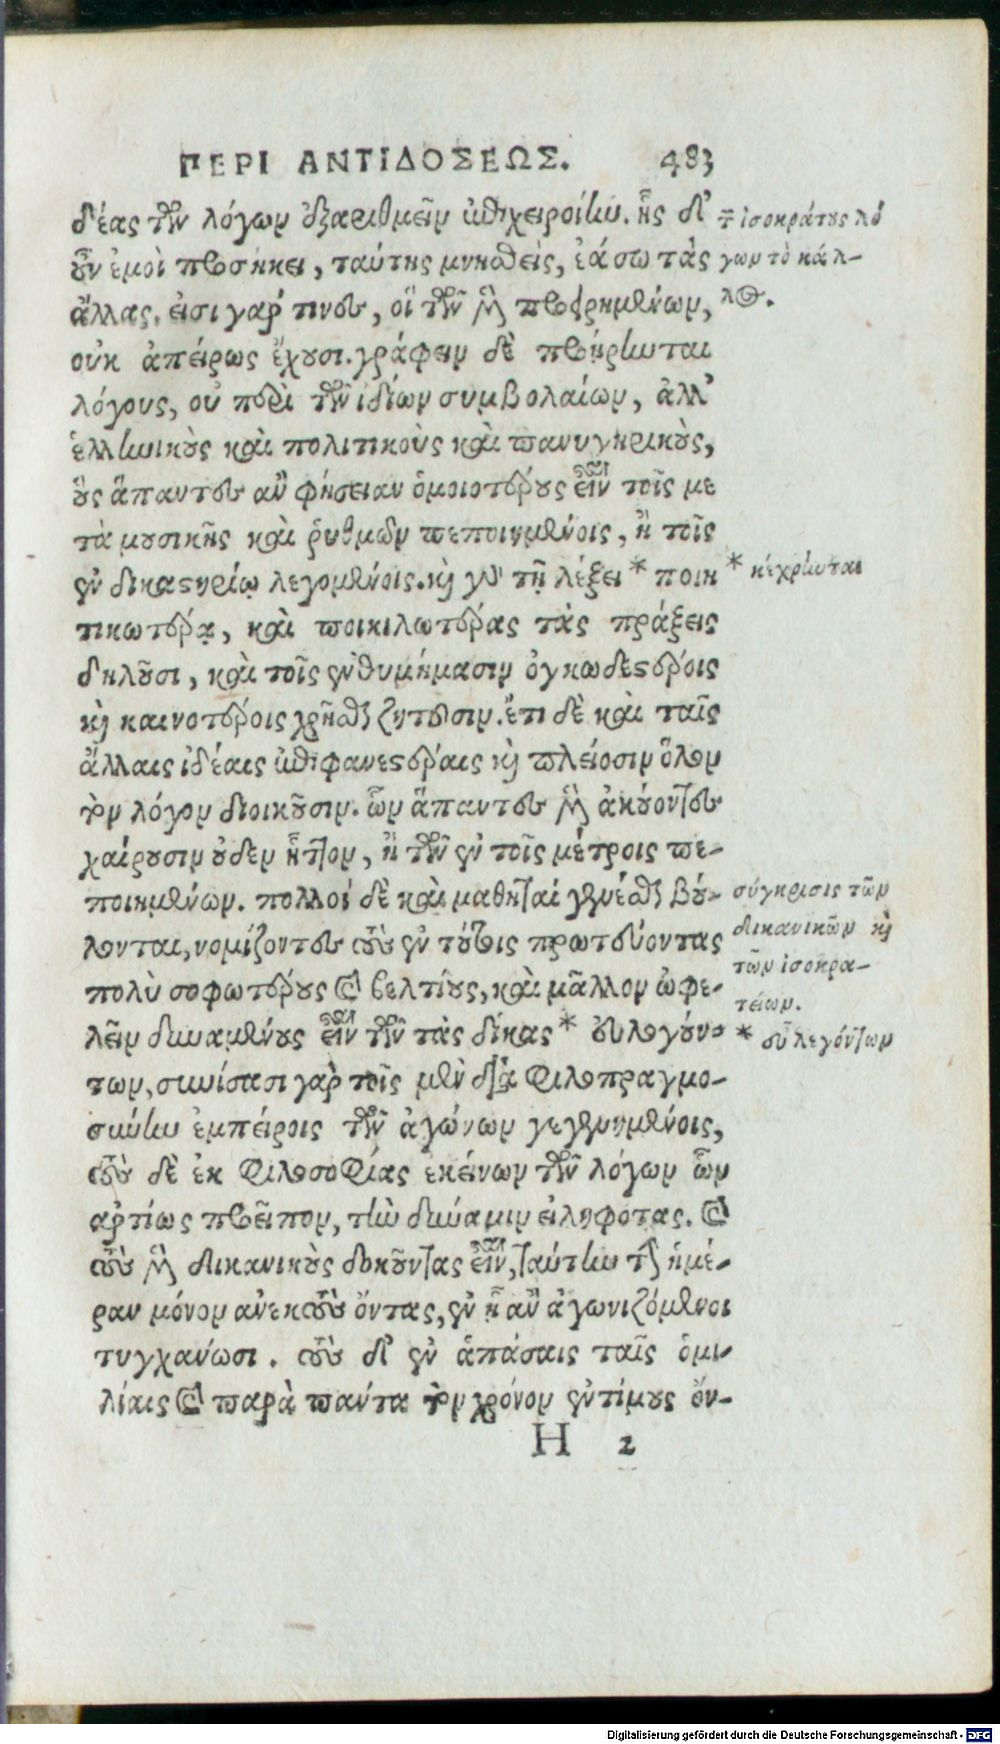 ΠΕΡΙ ΑΝΤΙΔΟΣΕΩΣ. 483
δέας τῶν λόγων ἐξαριθμεῖν ἐπιχειροίην. ἧς δ'
οὖν ἐμοὶ προσήκει, ταύτης μνησθεὶς, ἐάσω τὰς
ἄλλας. εἰσι γάρ τινες, οἳ τῶν μὲν προειρημένων,
οὐκ ἀπείρως ἔχουσι. γράφειν δὲ προῄρηνται
λόγους, οὐ περὶ τῶν ἰδίων συμβολαίων, ἀλλ'
ἑλληνικοὺς καὶ πολιτικοὺς καὶ πανυγηρικοὺς,
οὓς ἅπαντες ἂν φήσειαν ὁμοιοτέρους εἶναι τοῖς με
τὰ μουσικῆς καὶ ῥυθμῶν πεποιημένοις, ἢ τοῖς
ἐν δικαστηρίῳ λεγομένοις. καὶ γὰρ τῇ λέξει * ποιη
τικωτέρᾳ, καὶ ποικιλωτέρας τὰς πράξεις
δηλοῦσι, καὶ τοῖς ἐνθυμήμασιν ὀγκωδεστέροις
καὶ καινοτέροις χρῆσθαι ζητοῦσιν. ἔτι δὲ καὶ ταῖς
ἄλλαις ἰδέαις ἐπιφανεστέραις καὶ πλείοσιν ὅλον
τὸν λόγον διοικοῦσιν. ὧν ἅπαντες μὲν ἀκούοντες
χαίρουσιν οὐδεν ἧττον, ἢ τῶν ἐν τοῖς μέτροις πε-
ποιημένων. πολλοὶ δὲ καὶ μαθηταὶ γενέσθαι βού-
λονται, νομίζοντες τοὺς ἐν τούτοις πρωτεύοντας
πολὺ σοφωτέρους καὶ βελτίους, καὶ μᾶλλον ὠφε-
λεῖν δυναμένους εἶναι τῶν τὰς δίκας * οὐ λεγόν-
των, συνίσασι γὰρ τοῖς μὲν διὰ φιλοπραγμο-
σύνην ἐμπείροις τῶν ἀγώνων γεγενημένοις,
τοὺς δὲ ἐκ φιλοσοφίας ἐκείνων τῶν λόγων ὧν
αρτίως προεῖπον, τὴν δύναμιν εἰληφότας. καὶ
τοὺς μὲν δικανικοὺς δοκοῦντας εἶναι, ταύτην τὴν ἡμέ-
ραν μόνον ανεκτοὺς ὄντας, ἐν ᾗ ἂν ἀγωνιζόμενοι
τυγχανωσι. τοὺς δ' ἐν ἁπάσαις ταῖς ὁμι-
λίαις καὶ παρὰ πάντα τὸν χρόνον ἐντίμους ὄν-
H 2
τῶν ἰσοκράτους λό
γων τὸ κάλ-
λος.
* κέχρηνται
σύγκρισις τῶν
δικανικῶν καὶ
τῶν ἰσοκρα-
τείων.
* εὖ λεγόντων
Digitalisierung gefördert durch die Deutsche Forschungsgemeinschaft - DFG